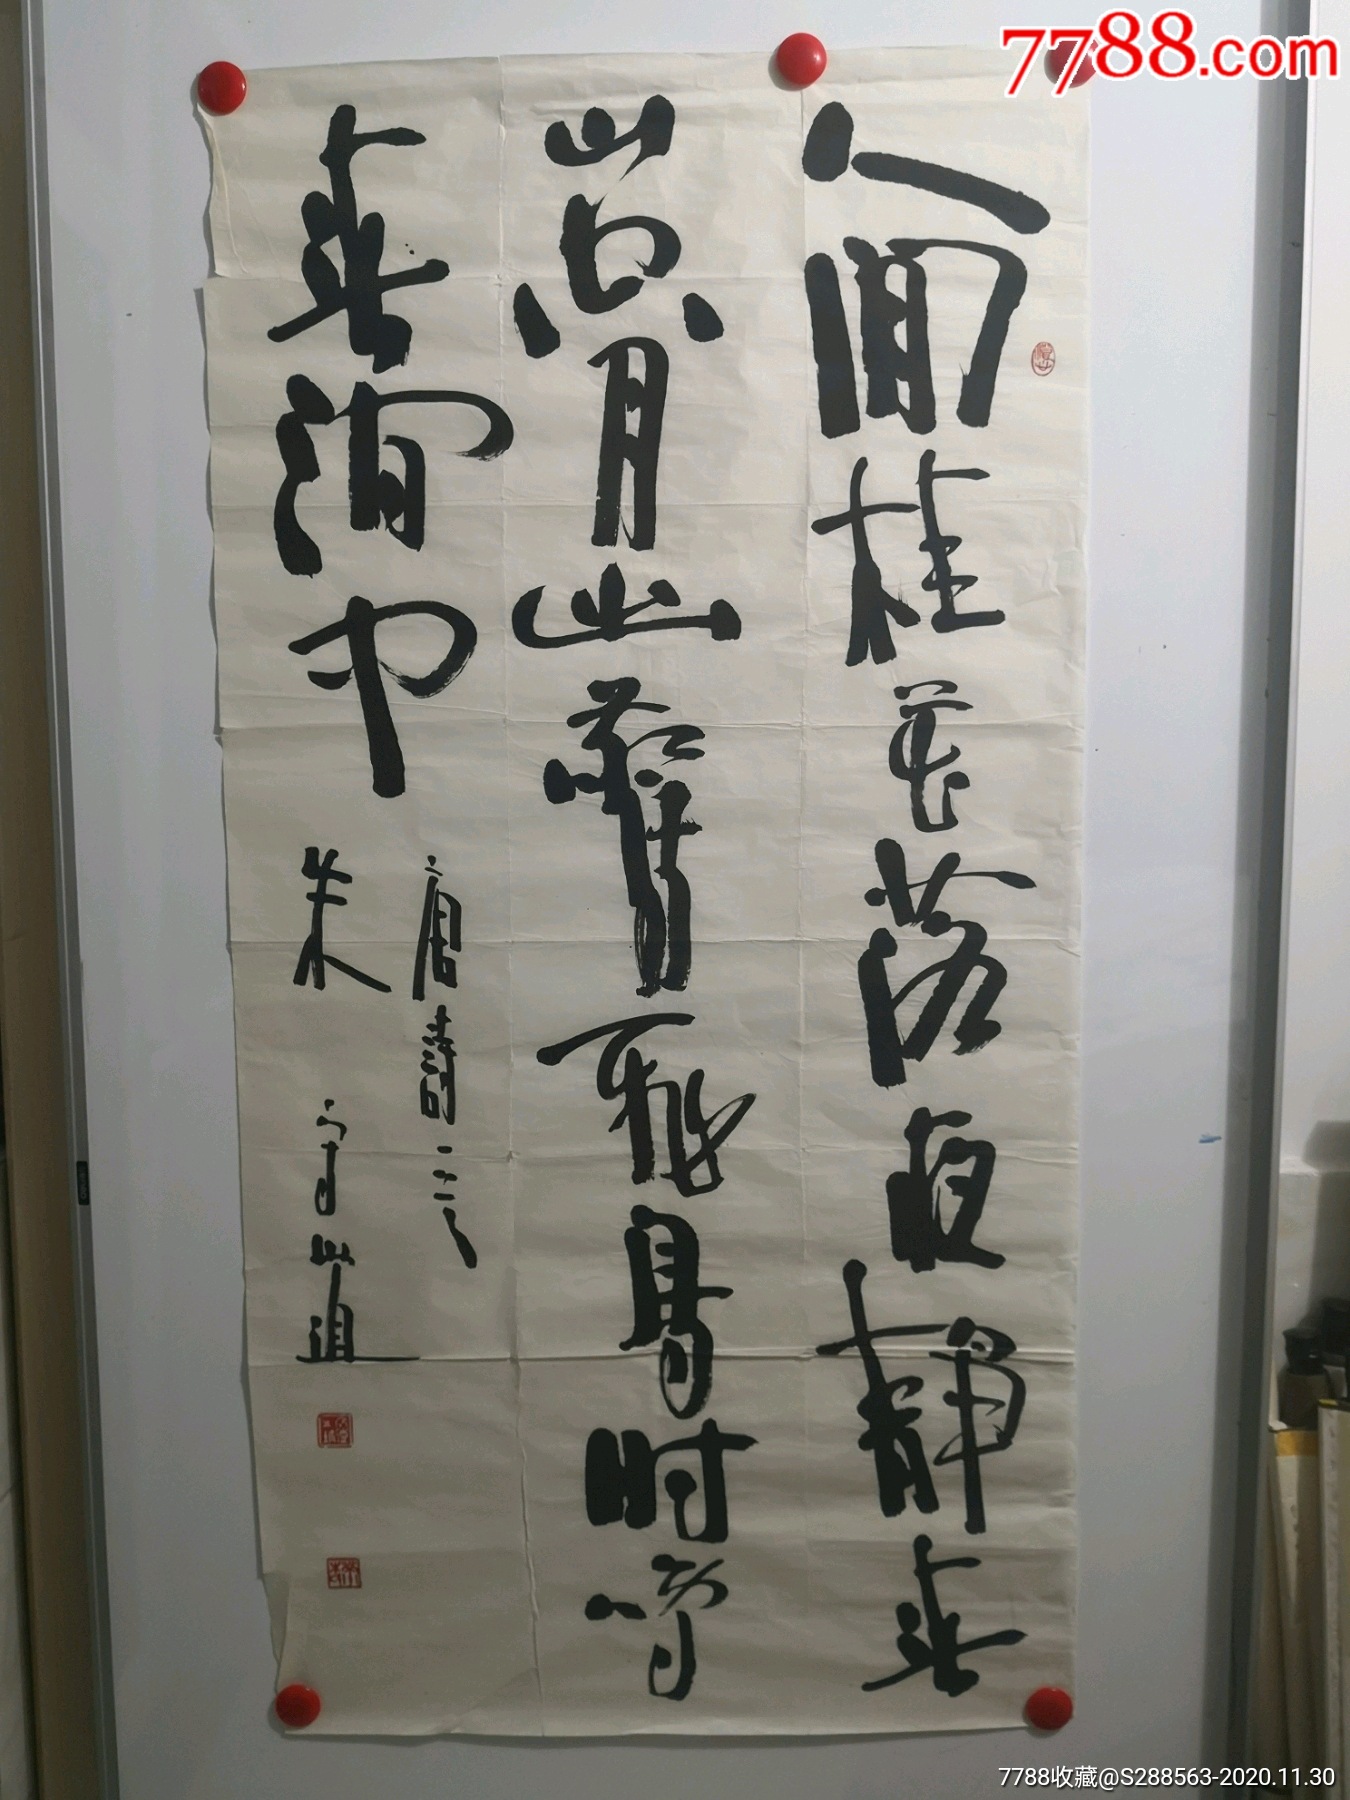 7788.com
人閒桂花落夜靜春
山空月出驚飛鳥时鳴
春澗中
唐詩一首
朱守道
7788收藏@S288563-2020.11.30